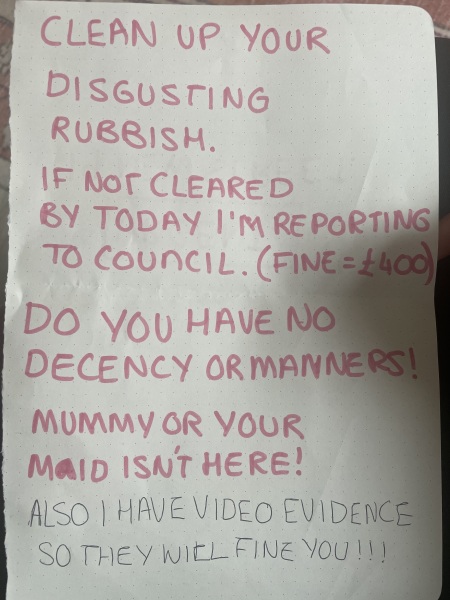 CLEAN UP YOUR
DISGUSTING
RUBBISH.
IF NOT CLEARED
BY TODAY I'M REPORTING
TO COUNCIL. (FINE = £400)
DO YOU HAVE NO
DECENCY OR MANNERS!
MUMMY OR YOUR
MAID ISN'T HERE!
ALSO I HAVE VIDEO EVIDENCE
SO THEY WILL FINE YOU!!!